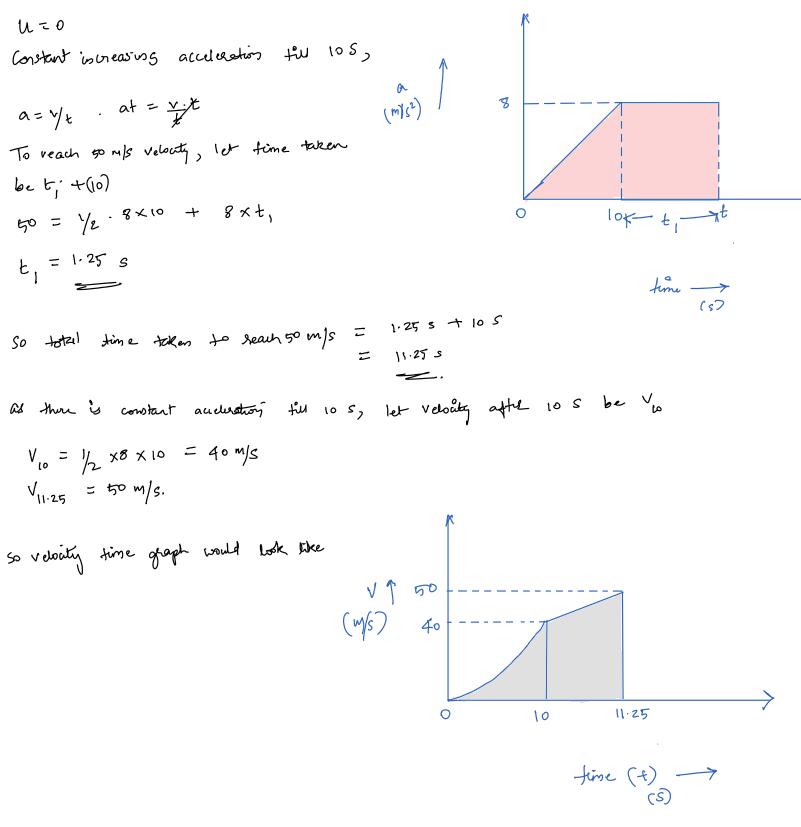 u = 0
Constant increasing acceleration till 10 S,
a = v/t . at = v·t/t
To reach 50 m/s velocity, let time taken
be t₁ + (10)
50 = 1/2 · 8×10 + 8×t₁
t₁ = 1.25 s
a
(m/s²)
8
0
10
t₁
t
time
(s)
So total time taken to reach 50 m/s = 1.25 s + 10 s
= 11.25 s
As there is constant acceleration till 10 S, let velocity after 10 S be V₁₀
V₁₀ = 1/2 ×8×10 = 40 m/s
V₁₁.₂₅ = 50 m/s.
So velocity time graph would look like
V
(m/s)
50
40
0
10
11.25
time (t)
(s)